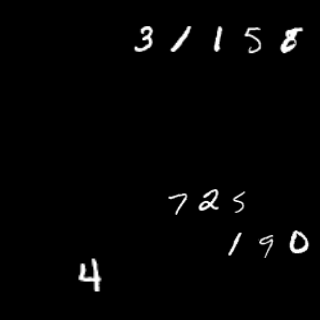 31158
725
190
4